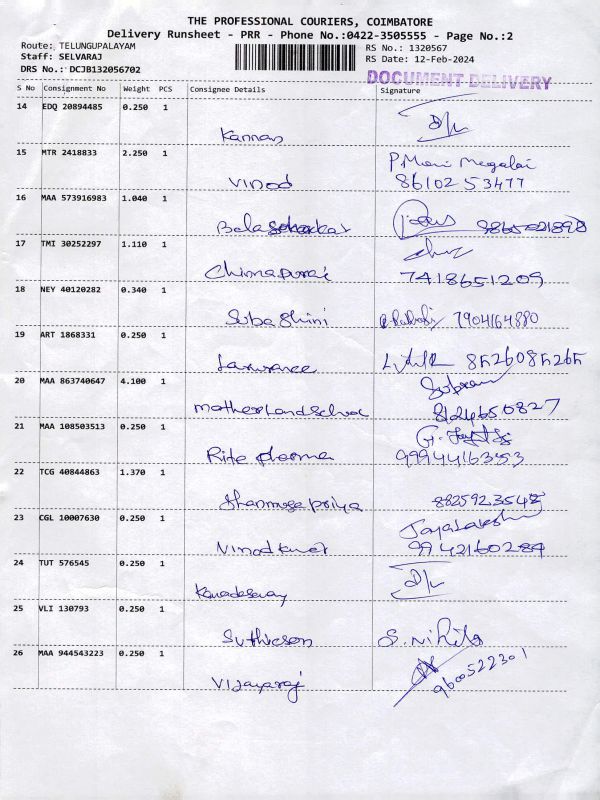 THE PROFESSIONAL COURIERS, COIMBATORE
Delivery Runsheet - PRR - Phone No.:0422-3505555 - Page No.:2
Route: TELUNGUPALAYAM
RS No.: 1320567
Staff: SELVARAJ
RS Date: 12-Feb-2024
DRS No.: DCJB132056702
DOCUMENT DELIVERY
S No Consignment No Weight PCS Consignee Details Signature
14 EDQ 20894485 0.250 1
Kannan
15 MTR 2418833 2.250 1 P. Mani Megalai
Vinod 86102 53477
16 MAA 573916983 1.040 1
17 TMI 30252297 1.110 1
Chinnadurai 7418651209
18 NEY 40120282 0.340 1
Suba Shini 7904164880
19 ART 1868331 0.250 1
8526085265
20 MAA 863740647 4.100 1
Motherland School 8124650827
21 MAA 108503513 0.250 1
Rite Pharma 9994416353
22 TCG 40844863 1.370 1
Shanmuga Priya
23 CGL 10007630 0.250 1 Jayalakshmi
Vinod Kumar 9942160284
24 TUT 576545 0.250 1
25 VLI 130793 0.250 1
S. Nihila
26 MAA 944543223 0.250 1
Vijayaraj 9600522301